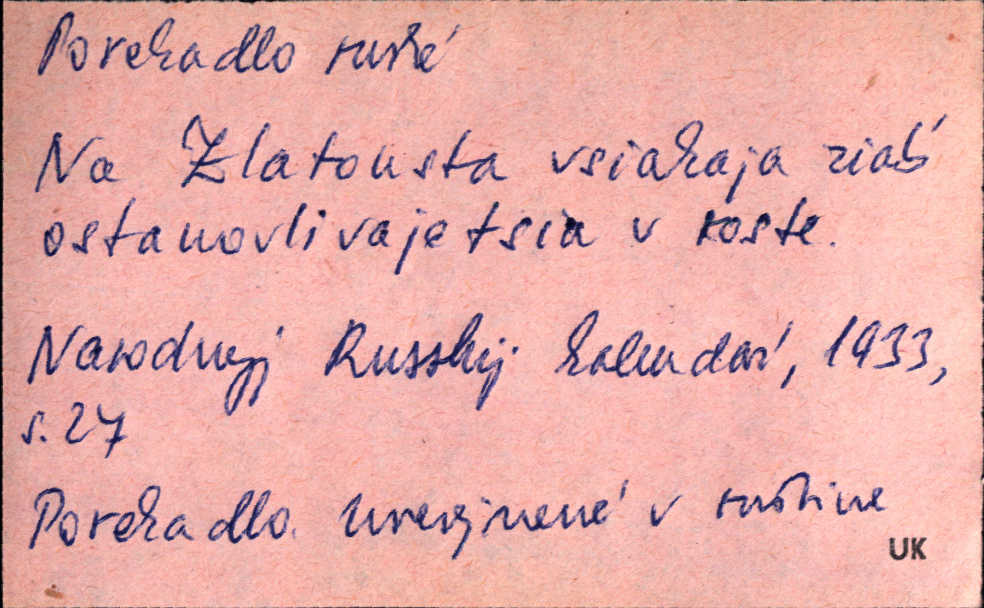 Porekadlo ruské
Na Zlatousta vsiakaja ziab
ostanovlivajetsia v roste.
Narodnyj Russkij kalendar', 1933,
s. 27
Porekadlo. Uverejnené v ruštine
UK